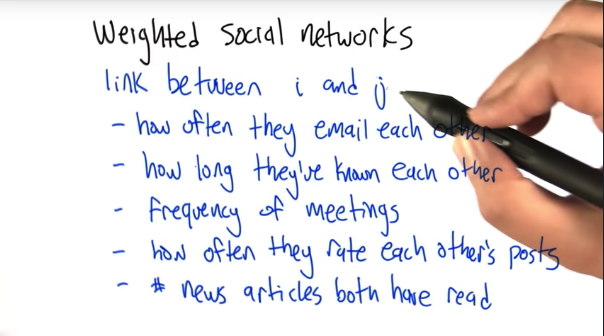 Weighted social networks
link between i and j
- how often they email each other
- how long they've known each other
- frequency of meetings
- how often they rate each other's posts
- # news articles both have read